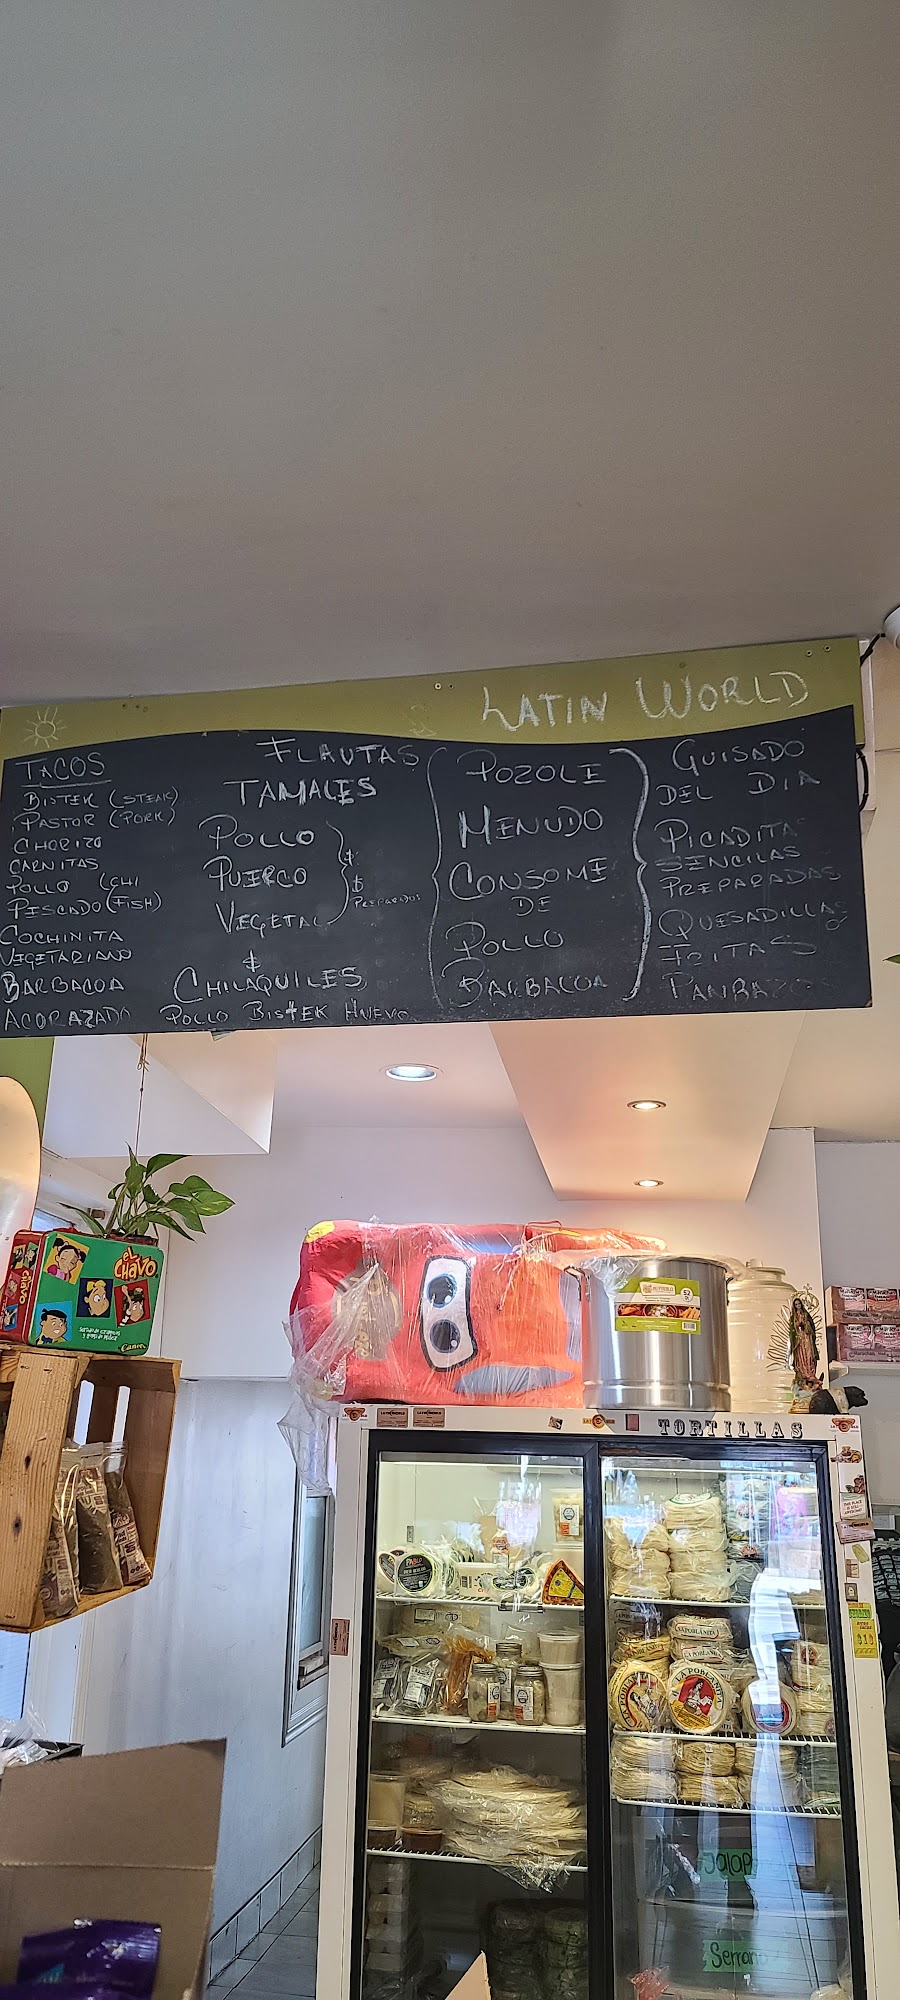 LATIN WORLD
TACOS
BISTEK (STEAK)
PASTOR (PORK)
CHORIZO
CARNITAS
POLLO (CHI
PESCADO (FISH)
COCHINITA
VEGETARIANO
BARBACOA
ACORAZADO
FLAUTAS
TAMALES
POLLO
PUERCO
VEGETAL
$
$
PREPARADOS
$
CHILAQUILES
POLLO BISTEK HUEVO
POZOLE
MENUDO
CONSOME
DE
POLLO
BARBACOA
GUISADO
DEL DIA
PICADITAS
SENCILAS
PREPARADAS
QUESADILLAS
FRITAS
PANBAZOS
el CHAVO
Chavo
TORTILLAS
PABLO
LA POBLANITA
LA POBLANITA
LA POBLANITA
Jalap
Serrano